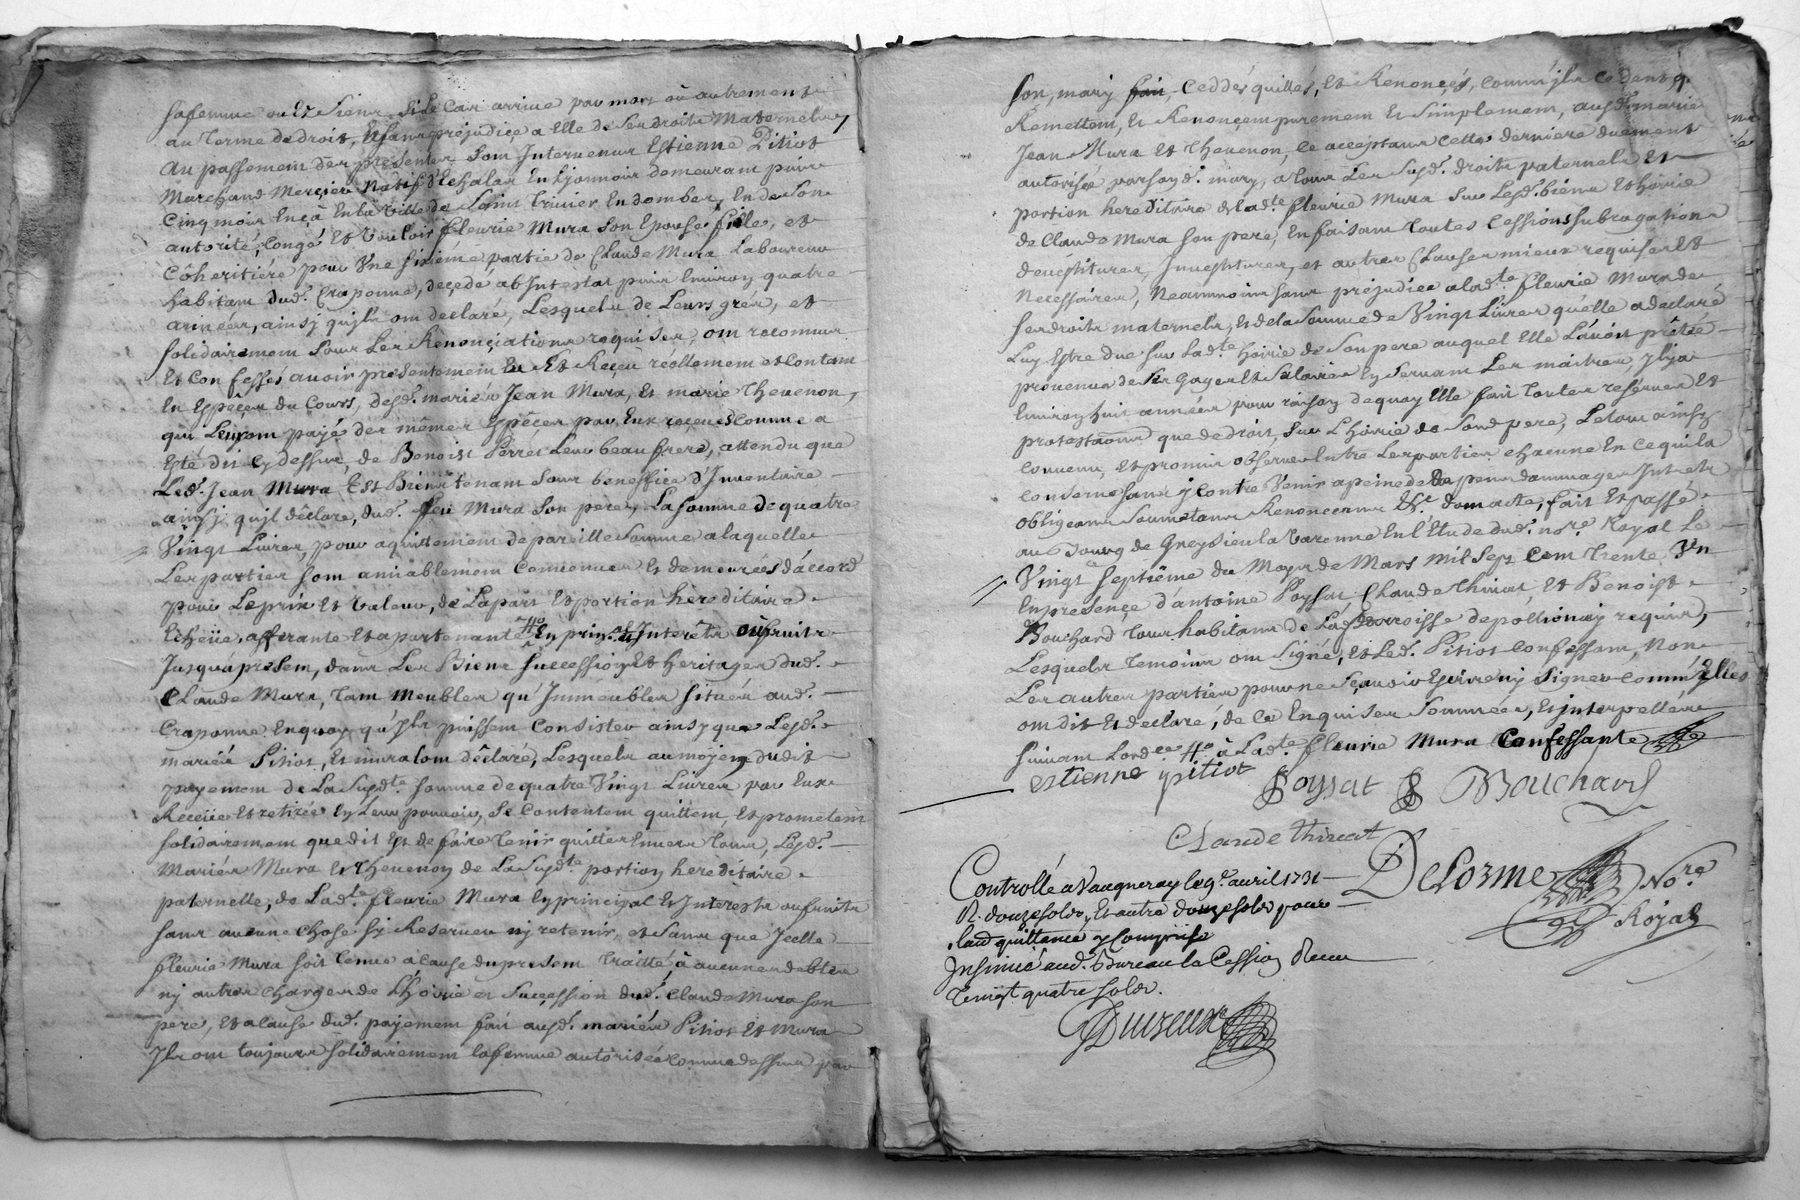 sa femme ou Et Siens, si Le Cas arrive par mort où autrement
au Terme de droit, Et sans prejudiçe a Elle de Ses droits Maternels,
Au passement des presentes Sont Intervenus Estienne Pitiot
Marchand Merçier Natif d'Echalas En Lyonnois demeurant puis
Cinq mois En çà En la Ville de Saint Trivier En dombes, En de Son
autorité, Congé Et Vouloir fleurie Mura Son Epouse fille, et
Côheritiére pour Vne sixiéme partie de Claude Mura Laboureur
habitant dud. Craponne, deçedé abIntestat puis Environ quatre
années, ainsj qu'jls ont declaré, Lesquels de Leurs grez, et
solidairement Sous Les Rénonçiations requises, ont reconnus
Et Confessés avoir presentement Eu Et Reçeu réellement et contant
En Espêçes du Cours, desd. mariés Jean Mura, Et marie Thevenon,
qui Leur ont payé des mêmes Espêçes par Eux reçeues comme a
Esté dit Cy dessus, de Benoist Perret Leur beau frere, attendu que
Led. Jean Mura Est Bientenant Sous beneffice d'Inventaire
ainsj qu'jl déclare, dud. feu Mura Son pere, La somme de quatre
Vingt Livres, pour aquittement de pareille Somme a laquelle
Les parties sont amiablement Convenues Et demeurées d'accord
pour Le prix Et Valeur, de La part Et portion hèreditaire
Echeüe, afferante Et apartenante En prin.al Interêts oü fruits
Jusqu'a present, dans Les Biens Successions Et Heritages dud.
Claude Mura, tant Meubles qu'Immeubles situés aud.
Craponne En quoy qu'jls puissent Consister ainsy que Lesd.
mariés Pitiot, Et mura L'ont déclaré, Lesquels au moyen dudit
payement de La Susd.te somme de quatre Vingt Livres par Eux
Receüe Et retirée En Leur pouvoir, Se Contentent quittent, Et prometent
solidairement que dit Est de faire Tenir quittes Envers Tous, Lesd.
Mariés Mura Et Thevenon de La Susd.te portion hereditaire
paternelle, de Lad.te fleurie Mura En principal Et Interests ou fruits
sans aucune chose s'y Reserver nj retenir, et Sans que Jcelle
fleurie Mura soit Tenue a cause du present Traitté, à aucunes debtes
nj autres charges de L'hoirie et Suçession dud. Claude Mura Son
pere, Et a cause dud. payement fait ausd. mariés Pitiot Et Mura
Jls ont toujours solidairement la femme autorisée comme dessus par
Son, mary fait, Ceddés quittés, Et Renonçés, comm'jls Cedent q.
Remettent, Et Renonçent purement Et Simplement, ausd. mariés
Jean Mura Et Thevenon, Ce acceptant Cette derniere duement
autorisée par sond. mary, a tous Les Susd. droits paternels Et
portion hereditaire de lad.te fleurie Mura Sur Lesd. biens Et hoirie
de Claude Mura Son pere, En faisant Toutes Cessions subrogations
deuéstitures, Jnuestitures, et autres Clauses mieux requises Et
Necessaires, Neanmoins sans prejudice a lad.te fleurie Mura de
ses droits maternels, Et de la Somme de Vingt Livres qu'elle a declaré
Luy Estre due sur Lad.te hoirie de Son pere auquel Elle L'avoit prêtée
provenue de Ses Gages Et Salaires En Servant Les maitres, jl y a
Environ huit années pour raison de quoy Elle fait Toutes reserves Et
protestations que de droit, Sur L'hoirie de Sond. pere, Le tout ainsy
Convenu, Et promis observer Entre Les parties chacune En Ce qui la
Conserne sans y Contre Venir a peine de tous depens dommages Interets
obligeans Soumetans Renonceans &c. dont acte, fait Et passé
au Bourg de Grezieu la Varenne En l'Etude dud. no.re Royal Le
Vingt septiéme du Moys de Mars Mil Sept Cent Trente Vn
En presençe d'antoine Poysat Claude Thivat, Et Benoist
Bouchard tous habitans de La parroisse de pollionay requis,
Lesquels Temoins ont Signé, Et Led. Pitiot Confessant, Non
Les autres parties pour ne Sçavoir Escrire nj Signer comm'Elles
ont dit Et declaré, de Ce Enquises Sommées, Et jnterpellées
Suivant Lord.ce à Lad.te fleurie Mura Confessante
estienne pitiot Poysat B Bouchard
Claude thivat
Delorme No.re
Royal
Controllé a Vaugneray le 9.e auril 1731
R. douze solds, Et autre douze solds pour
laud quittance y Comprise
Insinué aud. Bureau la Cession Receu
Vingt quatre solds.